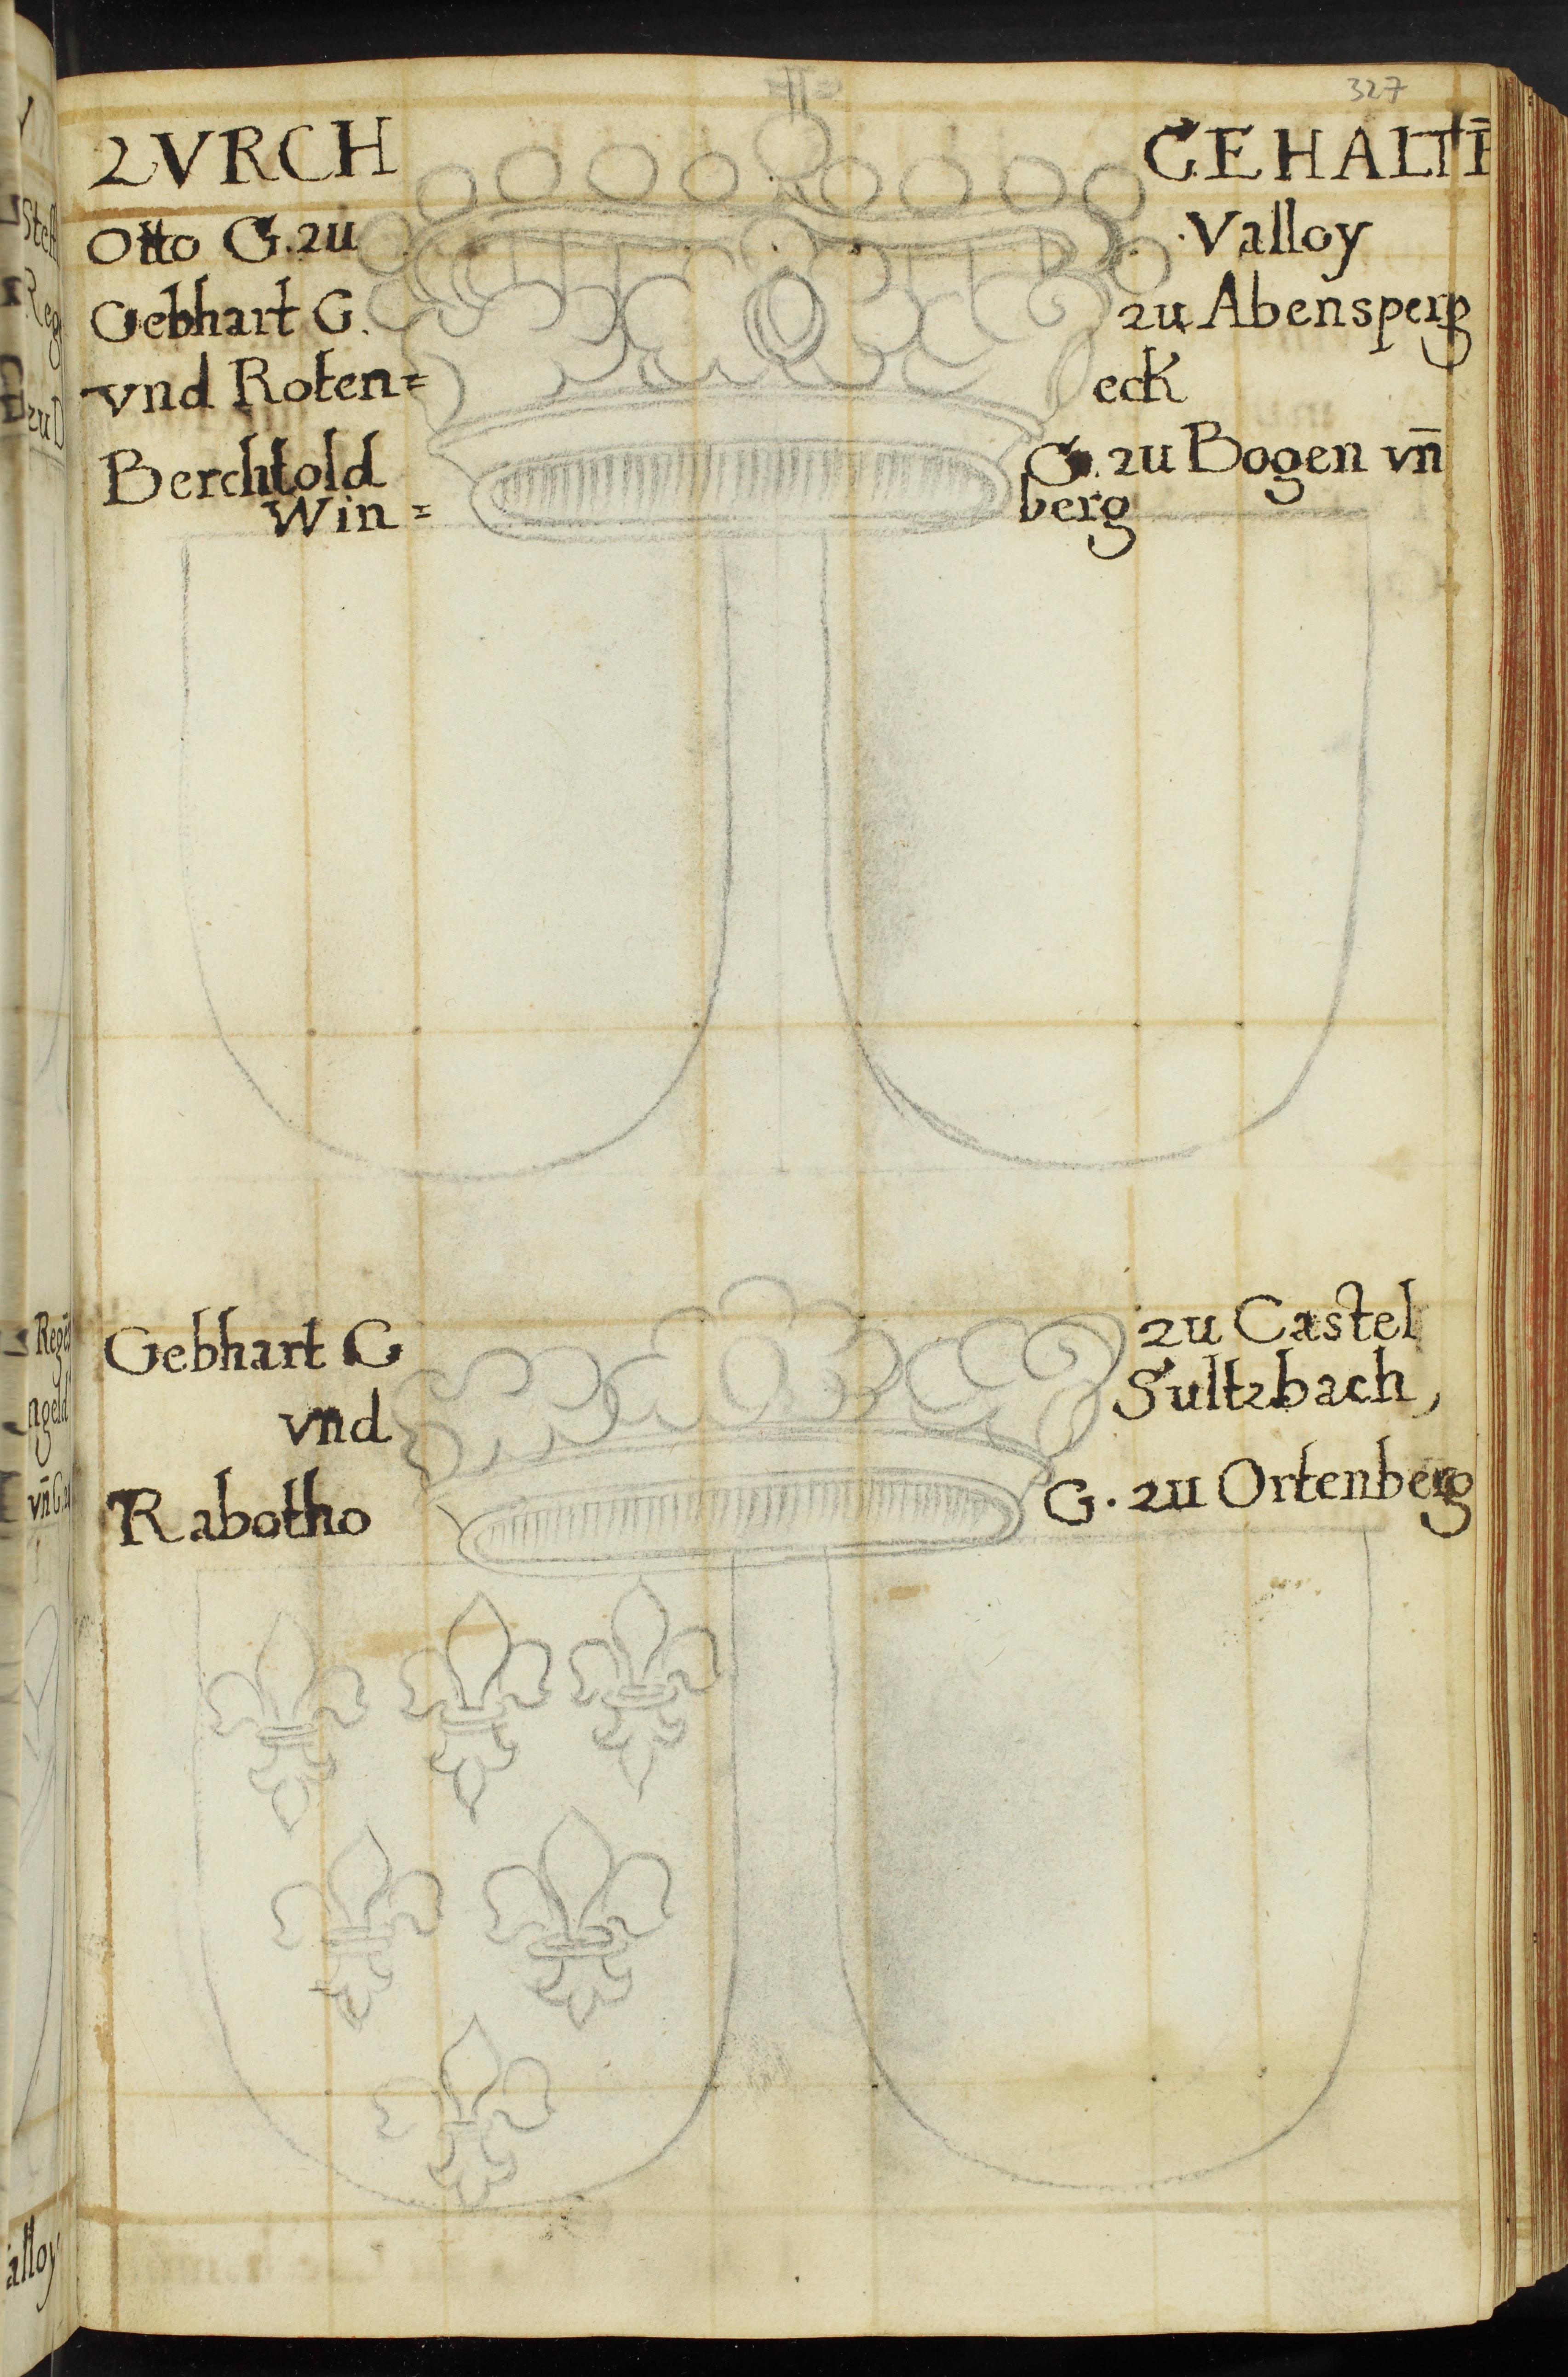 327
ZVRCH GEHALTĒ
Otto G. zu Valloy
Gebhart G. zu Abensperg
vnd Roten= eck
Berchtold G. zu Bogen vn̄
Win= berg
Gebhart G zu Castel
vnd Sultzbach,
Rabotho G. zu Ortenberg